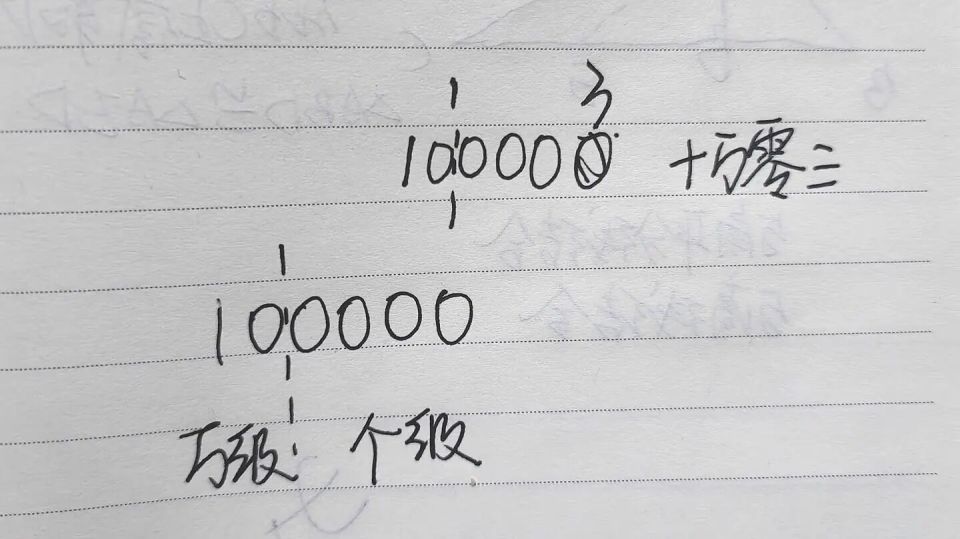 3
100000 十万零三
100000
万级 个级